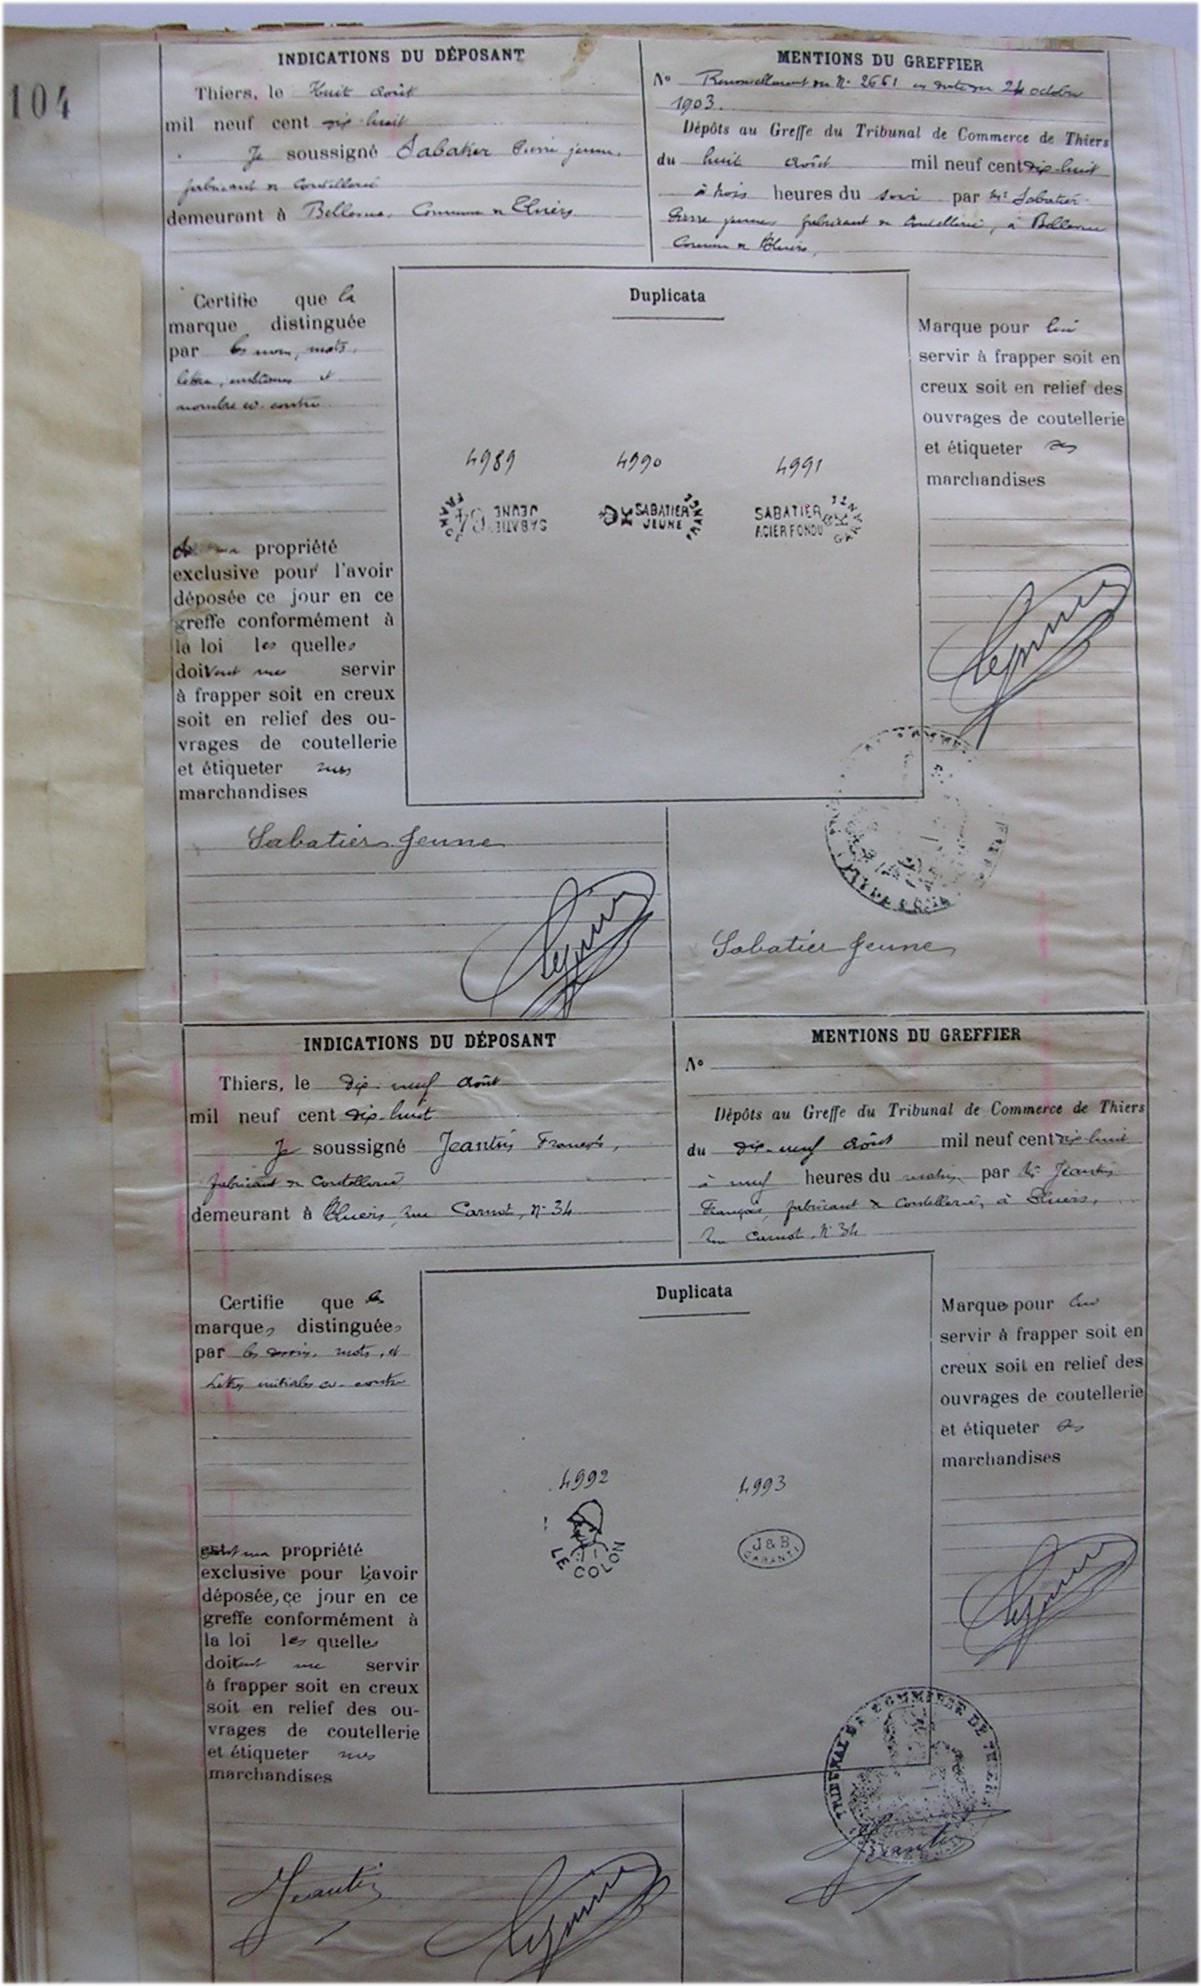 104
INDICATIONS DU DÉPOSANT
Thiers, le Huit Août
mil neuf cent dix-huit
Je soussigné Sabatier Pierre jeune,
fabricant de Coutellerie
demeurant à Bellevue, Commune de Thiers
MENTIONS DU GREFFIER
No Renouvellement du No 2661 en date du 24 octobre
1903.
Dépôts au Greffe du Tribunal de Commerce de Thiers
du huit Août mil neuf cent dix-huit
à trois heures du soir par Mr Sabatier
Pierre jeune, fabricant de Coutellerie, à Bellevue
Commune de Thiers,
Certifie que la
marque distinguée
par les noms, mots,
lettres, emblèmes et
nombre ci-contre
propriété
exclusive pour l'avoir
déposée ce jour en ce
greffe conformément à
la loi les quelles
doivent mes servir
à frapper soit en creux
soit en relief des ou-
vrages de coutellerie
et étiqueter mes
marchandises
Duplicata
4989 4990 4991
FRANCE 64 SABATIER JEUNE
SABATIER JEUNE FRANCE
SABATIER ACIER FONDU GARANTI
Marque pour lui
servir à frapper soit en
creux soit en relief des
ouvrages de coutellerie
et étiqueter ses
marchandises
Sabatier Jeune
Sabatier Jeune
INDICATIONS DU DÉPOSANT
Thiers, le dix-neuf Août
mil neuf cent dix-huit
Je soussigné Jeantin François,
fabricant de Coutellerie
demeurant à Thiers, rue Carnot, No 34
MENTIONS DU GREFFIER
No
Dépôts au Greffe du Tribunal de Commerce de Thiers
du dix-neuf Août mil neuf cent dix-huit
à neuf heures du matin par Mr Jeantin
François, fabricant de Coutellerie, à Thiers,
rue Carnot, No 34
Certifie que les
marques distinguées
par les mots, et
lettres initiales ci-contre
ma propriété
exclusive pour l'avoir
déposée, ce jour en ce
greffe conformément à
la loi les quelles
doivent me servir
à frapper soit en creux
soit en relief des ou-
vrages de coutellerie
et étiqueter mes
marchandises
Duplicata
4992 4993
LE COLON
J & B
GARANTI
Marques pour lui
servir à frapper soit en
creux soit en relief des
ouvrages de coutellerie
et étiqueter ses
marchandises
TRIBUNAL DE COMMERCE DE THIERS
Jeantin
Jeantin